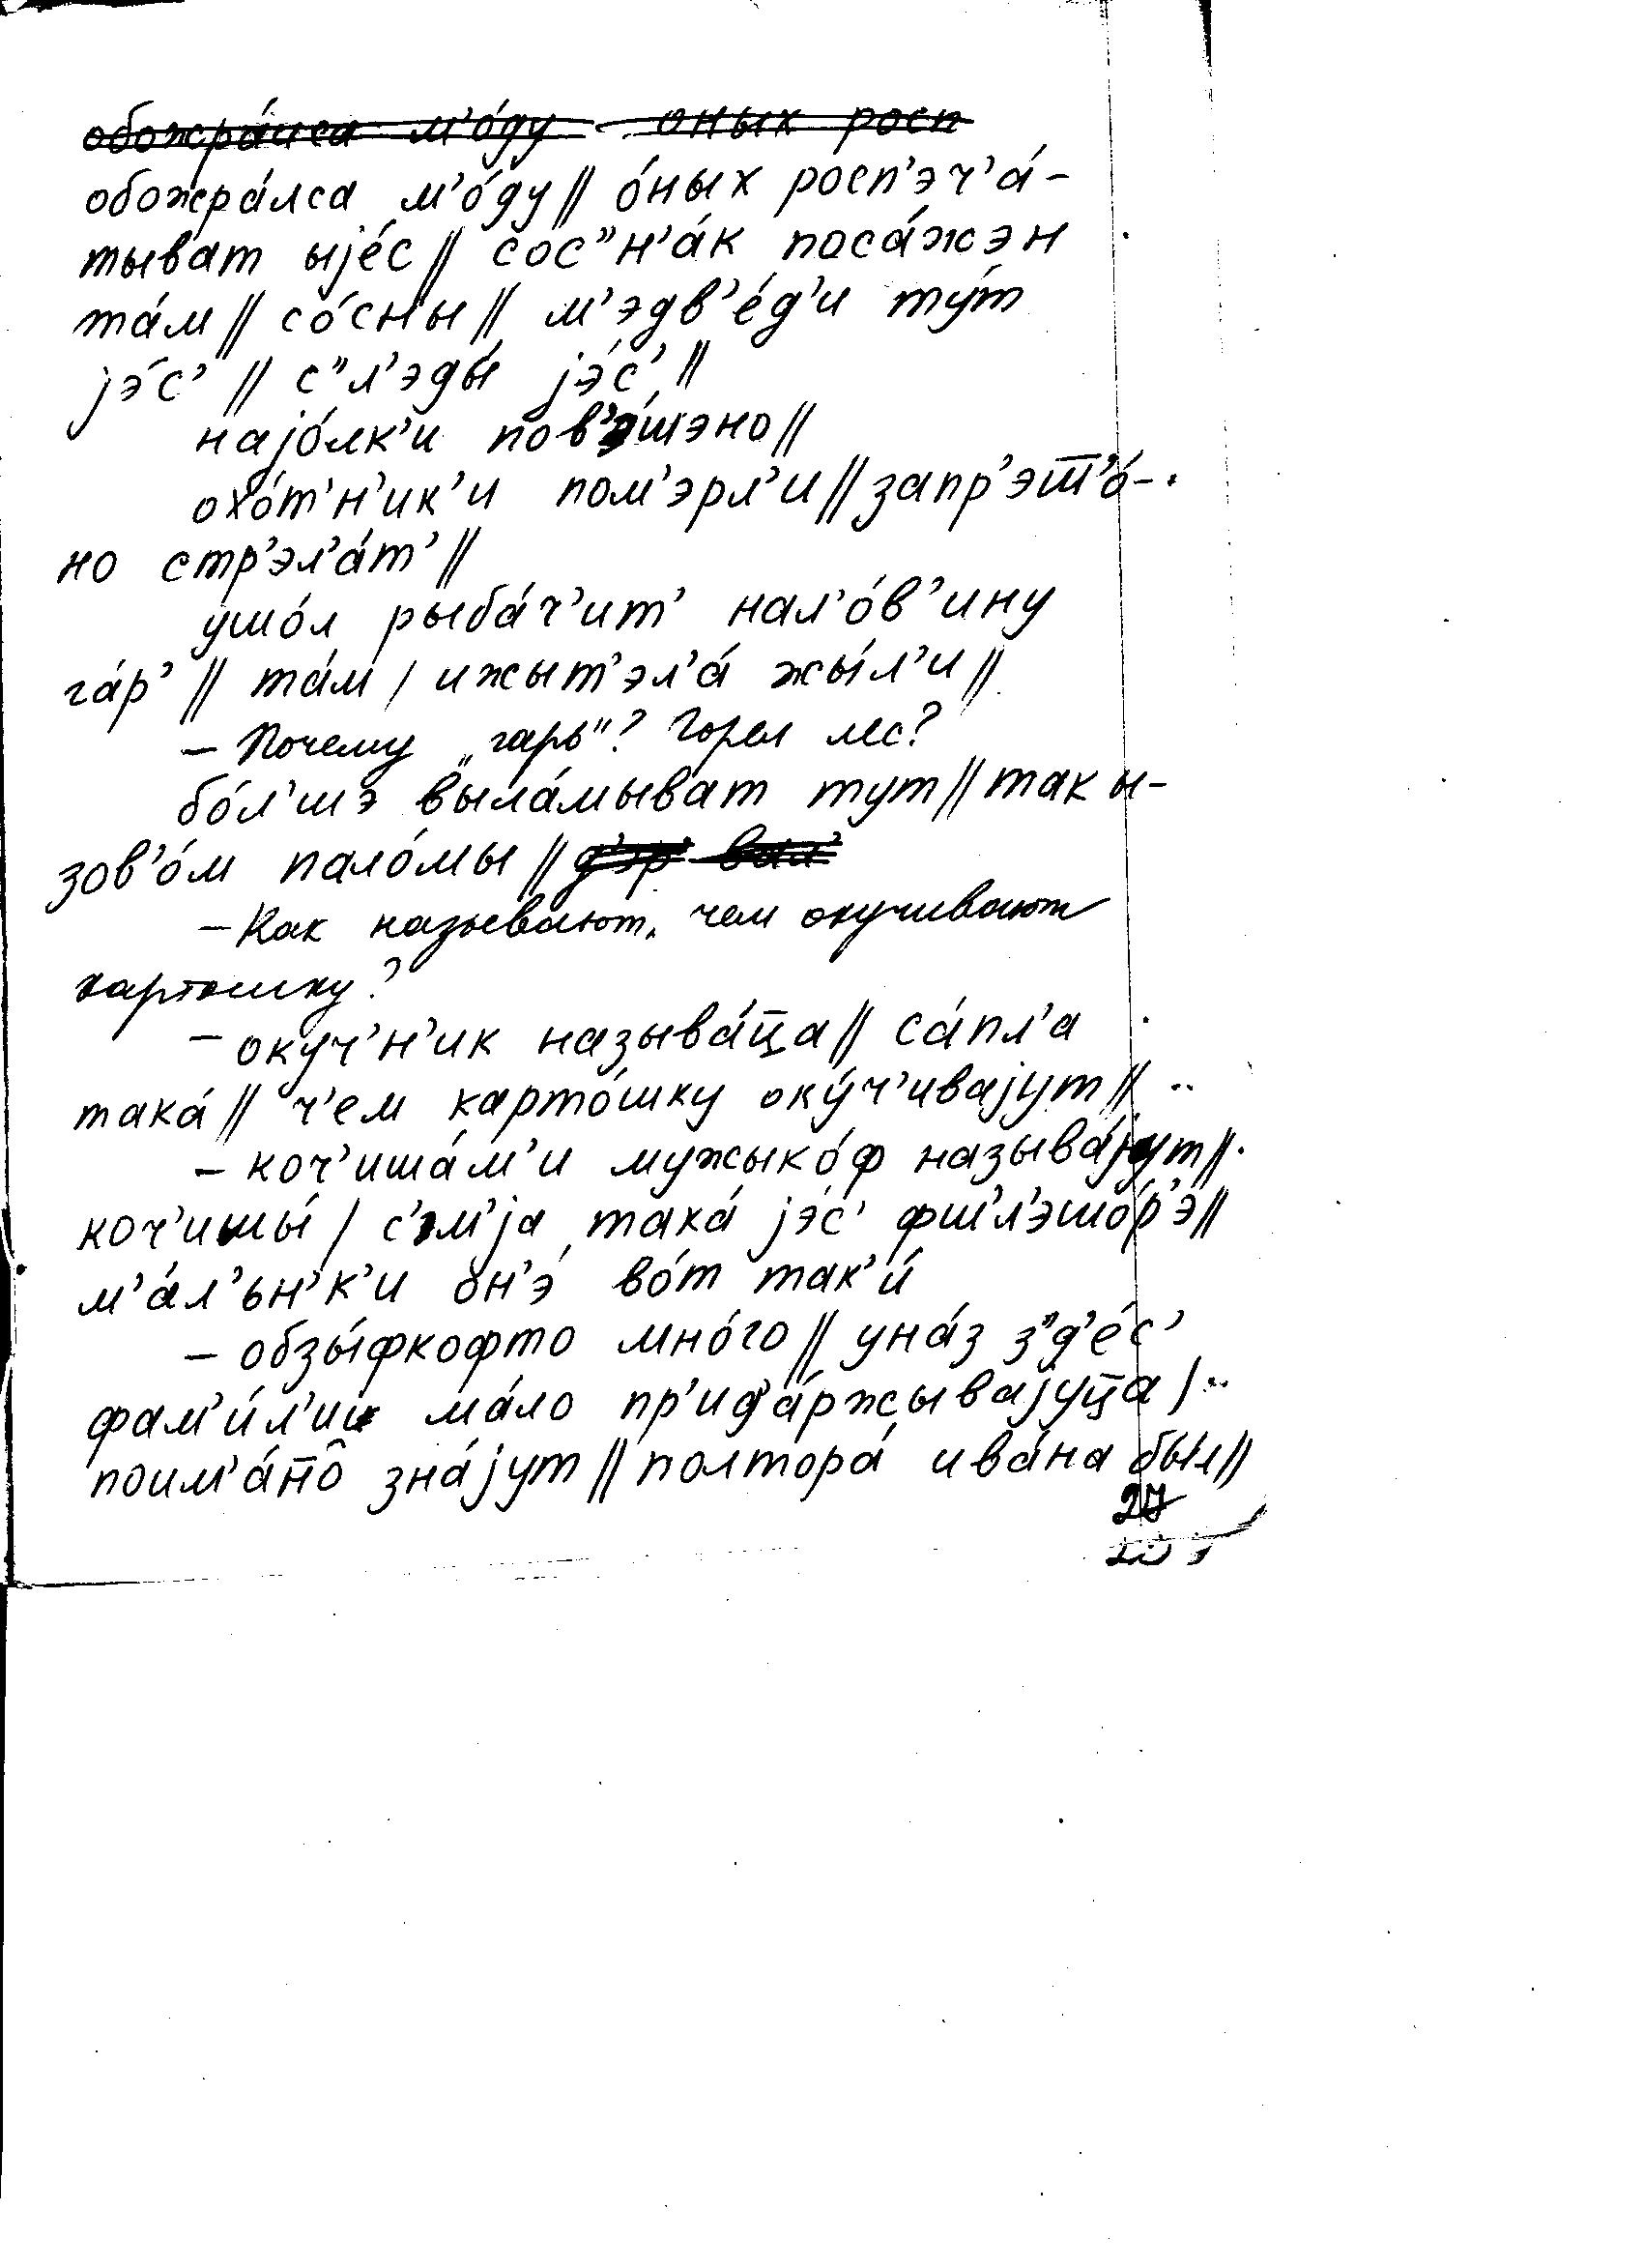 обожра́лса м'о́ду оных росп
обожра́лса м'о́ду // о́ных росп'эч'а́-
тыват ыjе́с // сос"н'а́к поса́жэн
та́м // со́сны // м'эдв'е́д'и ту́т
jэ́с' // с"л'эды́ jэ́с' //
наjо́лк'и пов'э́шэно //
охо́т'н'ик'и пом'эрл'и // запр'эш̅'о́-
но стр'эл'а́т' //
ушо́л рыба́ч'ит' нал'о́в'ину
га́р' // та́м / ижыт'эл'а́ жы́л'и //
– Почему „гарь"? Горел лес?
бо́л'шэ выла́мыват тут // так ы-
зов'о́м пало́мы // д'эр' вал'
– Как называют, чем окучивают
картошку?
– оку́ч'н'ик называ́ц̅а // са́пл'а
така́ // ч'ем карто́шку оку́ч'иваjут //
– коч'иша́м'и мужыко́ф называ́jут //
коч'ишы́ / с'эм'jа така́ jэ́с' фш'л'эшо́р'э //
м'а́л'ьн'к'и он'э́ во́т так'и́
– обзы́фкофто мно́го // уна́з з"д'е́с'
фам'и́л'ии ма́ло пр'ида́ржываjуц̅а /
поим'а́н̅о̂ зна́jут // полтора́ ива́на был //
27